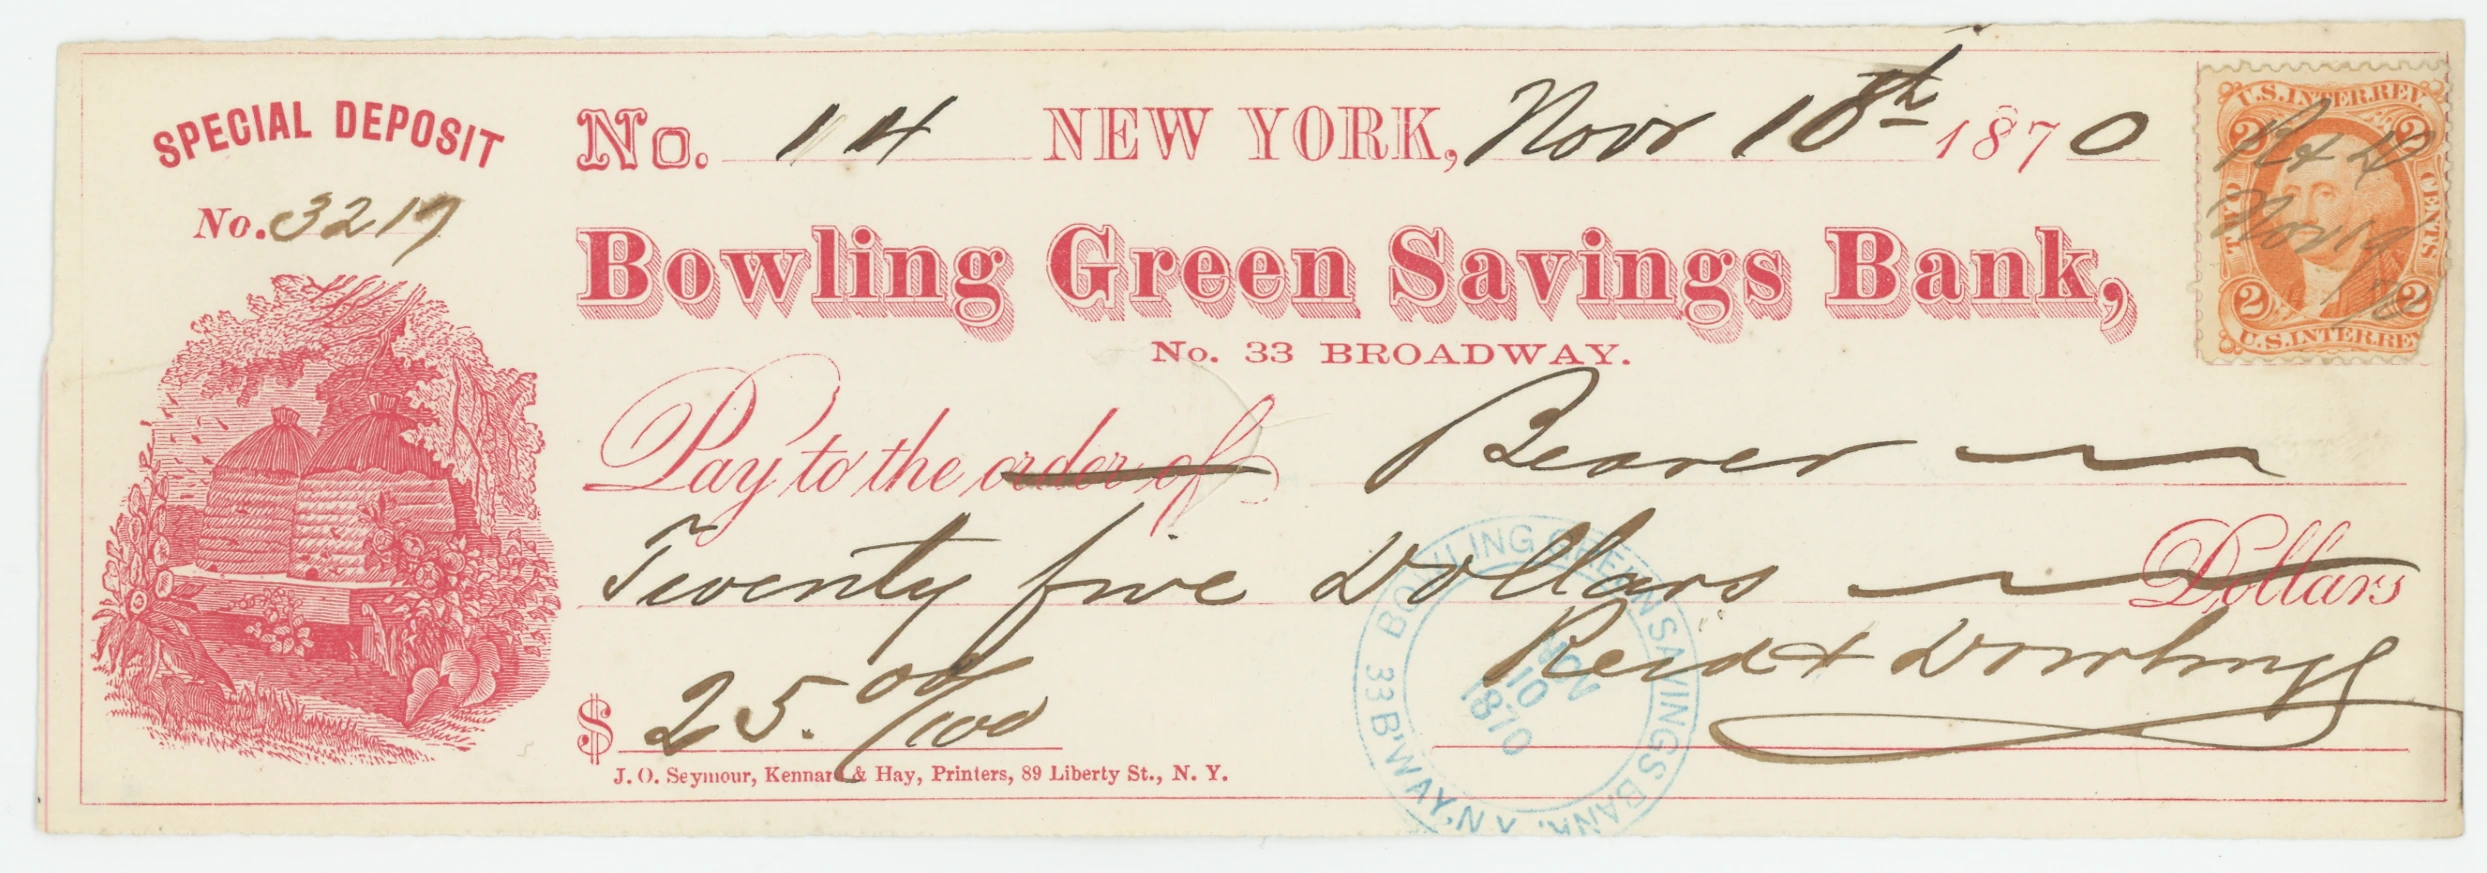 SPECIAL DEPOSIT
No. 3217
No. 14 NEW YORK, Novr 10th 1870
Bowling Green Savings Bank,
No. 33 BROADWAY.
Pay to the order of Bearer
Twenty five Dollars Dollars
$ 25.00/100
Reid &
J. O. Seymour, Kennard & Hay, Printers, 89 Liberty St., N. Y.
U.S. INTER. REV.
2 2
TWO CENTS
2 2
U.S. INTER. REV
R & D
Nov 10
70
BOWLING GREEN SAVINGS BANK
33 B'WAY, N.Y.
NOV
10
1870